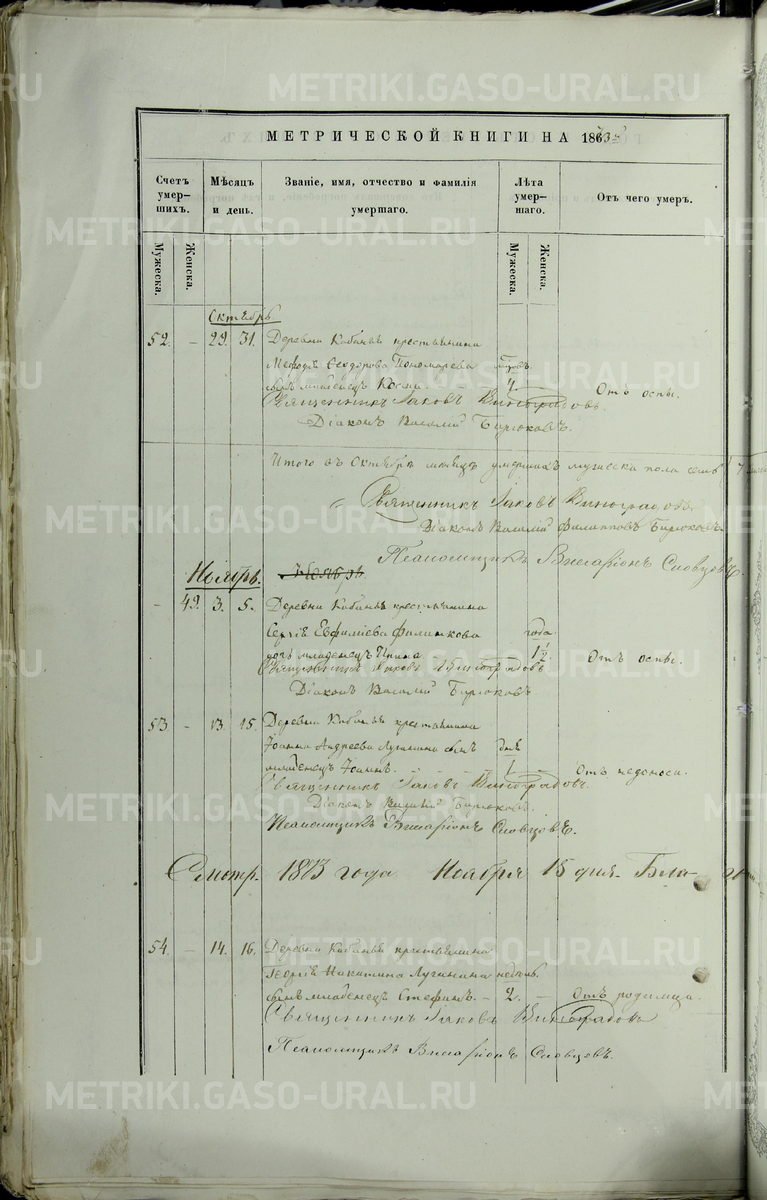 METRIKI.GASO-URAL.RU
МЕТРИЧЕСКОЙ КНИГИ НА 1873
Счетъ умер-шихъ.
Мѣсяцъ и день.
Званіе, имя, отчество и фамилія умершаго.
Лѣта умер-шаго.
Отъ чего умеръ.
Мужеска.
Женска.
Мужеска.
Женска.
Октябрь
52. – 29. 31. Деревни Кабаньѣ крестьянина
Ѳеодорова Пономарева
сынъ младенецъ Косма. 4. Отъ оспы.
Священникъ Іаковъ Виноградовъ.
Діаконъ Василій Бирюковъ.
Итого въ Октябрѣ мѣсяцѣ умершихъ мужеска пола семь 7
Священникъ Іаковъ Виноградовъ
Діаконъ Василій Филипповъ Бирюковъ
Псаломщикъ Виссаріонъ Словцовъ.
Ноябрь. Ноябрь
– 49. 3. 5. Деревни Кабаньѣ крестьянина
Сергія Филинкова года
дочь младенецъ 1½ Отъ оспы.
Священникъ Іаковъ Виноградовъ
Діаконъ Василій Бирюковъ
53 – 13. 15. Деревни Кабаньѣ крестьянина
Іоанна Андреева Лугинина сынъ дня
младенецъ Іоаннъ. 1 Отъ недоноса.
Священникъ Іаковъ Виноградовъ.
Діаконъ Василій Бирюковъ.
Псаломщикъ Виссаріонъ Словцовъ.
Смотр. 1873 года Ноября 15 дня. Бла-
54. – 14. 16. Деревни Кабаньѣ крестьянина
Георгія Никитина Лугинина недѣль
сынъ младенецъ Стефанъ. – 2. – Отъ родимца.
Священникъ Іаковъ Виноградовъ
Псаломщикъ Виссаріонъ Словцовъ.